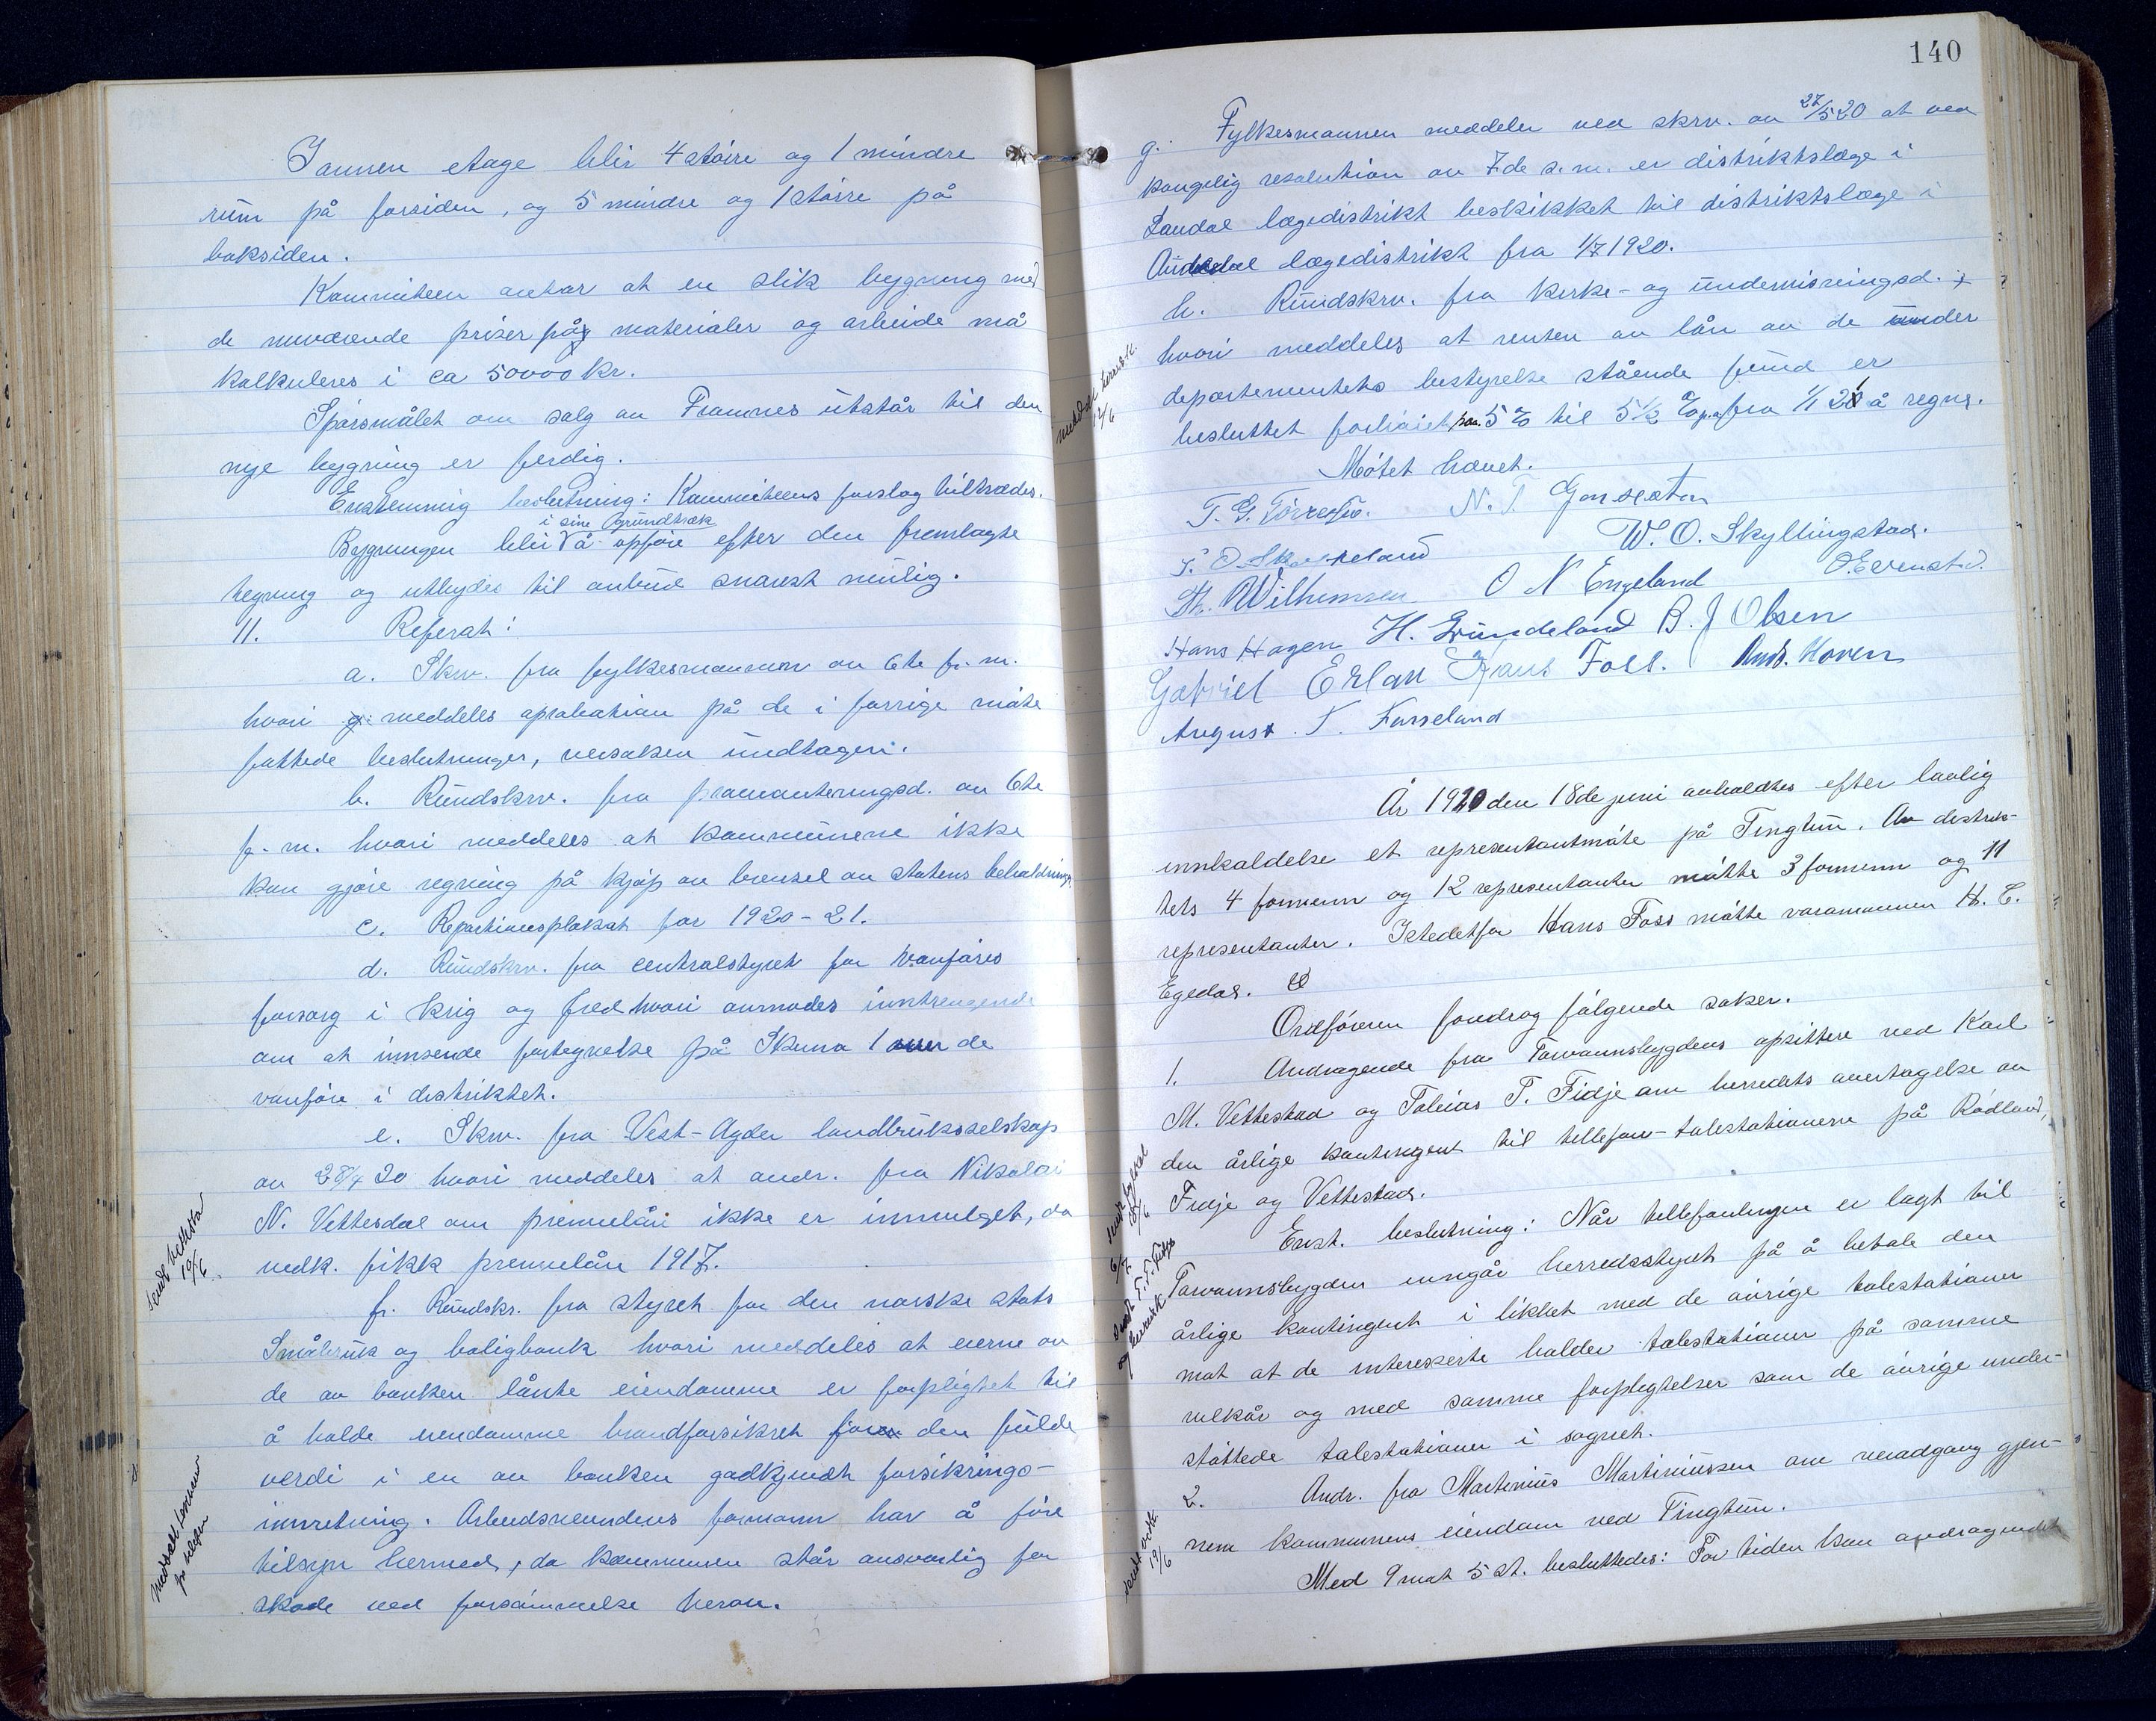 I annen etage blir 4 större og 1 mindre
rum på forsiden, og 5 mindre og 1 större på
baksiden.
Kommiteen antar at en slik bygning med
de nuværende priser på materialer og arbeide må
kalkuleres i ca 50000 kr.
Spörsmålet om salg av Framnes utstår til den
nye bygning er ferdig.
Enstemmig beslutning: Kommiteens forslag tiltrædes.
i sine grundtræk
Bygningen blir å opföre efter den fremlagte
tegning og utbydes til anbud snarest mulig.
11. Referat:
a. Skrv. fra fylkesmannen av 6te f. m.
hvori meddeles aprobation på de i forrige möte
fattede beslutninger, veisaken undtagen.
b. Rundskrv. fra provianteringsd. av 6te
f. m. hvori meddeles at kommunene ikke
kan gjöre regning på kjöp av brensel av statens beholdning.
c. Repartionsplakat for 1920-21.
d. Rundskrv. fra centralstyret for vanföres
forsorg i krig og fred hvori anmodes inntrengende
om at innsende fortegnelse på Skema 1 over de
vanföre i distriktet.
e. Skrv. fra Vest-Agder landbruksselskap
av 28/4 20 hvori meddeles at andr. fra Nikolai
N. Vettesdal om premielån ikke er innvilget, da
vedk. fikk premielån 1917.
sendt
10/6
f. Rundskr. fra styret for den norske stats
Småbruk og boligbank hvori meddeles at eierne av
de av banken lånte eiendomme er forpligtet til
å holde eiendomme brandforsikret for den fulde
verdi i en av banken godkjendt forsikrings-
innretning. Arbeidsnevndens formann har å före
tilsyn hermed, da kommunen står ansvarlig for
skade ved forsömmelse herav.
140
g. Fylkesmannen meddeler ved skrv. av 27/5 20 at ved
kongelig resolution av 7de s. m. er distriktslæge i
Laudal lægedistrikt beskikket til distriktslæge i
Audnedal lægedistrikt fra 1/7 1920.
h. Rundskrv. fra kirke- og undervisningsd.
hvori meddeles at renten av lån av de under
departementets bestyrelse stående fund er
besluttet forhöiet fra 5 % til 5 1/2 % p.a. fra 1/1 21 å regne.
12/6
Mötet hævet.
N. T.
W. O. Skyllingstad.
Th. Wilhemsen O N Engeland O. Evenstad.
Hans Hagen H. Grundeland B. J Olsen
Gabriel Erlan Hans Foss. Andr. Hoven
August T. Fasseland
År 1920 den 18de juni avholdtes efter lovlig
innkaldelse et representantmöte på Tingtun. Av distrik-
tets 4 formenn og 12 representanter mötte 3 formenn og 11
representanter. Istedetfor Hans Foss mötte varamannen H. C.
Egedal.
Ordföreren foredrog fölgende saker.
1. Andragende fra Tarvannsbygdens opsittere ved Karl
M. Vettestad og Tobias T. Fidje om herredets overtagelse av
den årlige kontingent til tellefon-talestationerne på Rödland,
Fidje og Vettestad.
Enst. beslutning: Når tellefonlinjen er lagt til
Tarvannsbygden inngår herredsstyret på å betale den
årlige kontingent i likhet med de övrige talestationer
mot at de interesserte holder talestationer på samme
vilkår og med samme forpligtelser som de övrige under-
stöttede talestationer i sognet.
6/7
sendt T. T. Fidje
2. Andr. fra Martinius Martiniussen om veiadgang gjen-
nem kommunens eiendom ved Tingtun.
Med 9 mot 5 st. besluttedes: For tiden kan andragendet
sendt
19/6